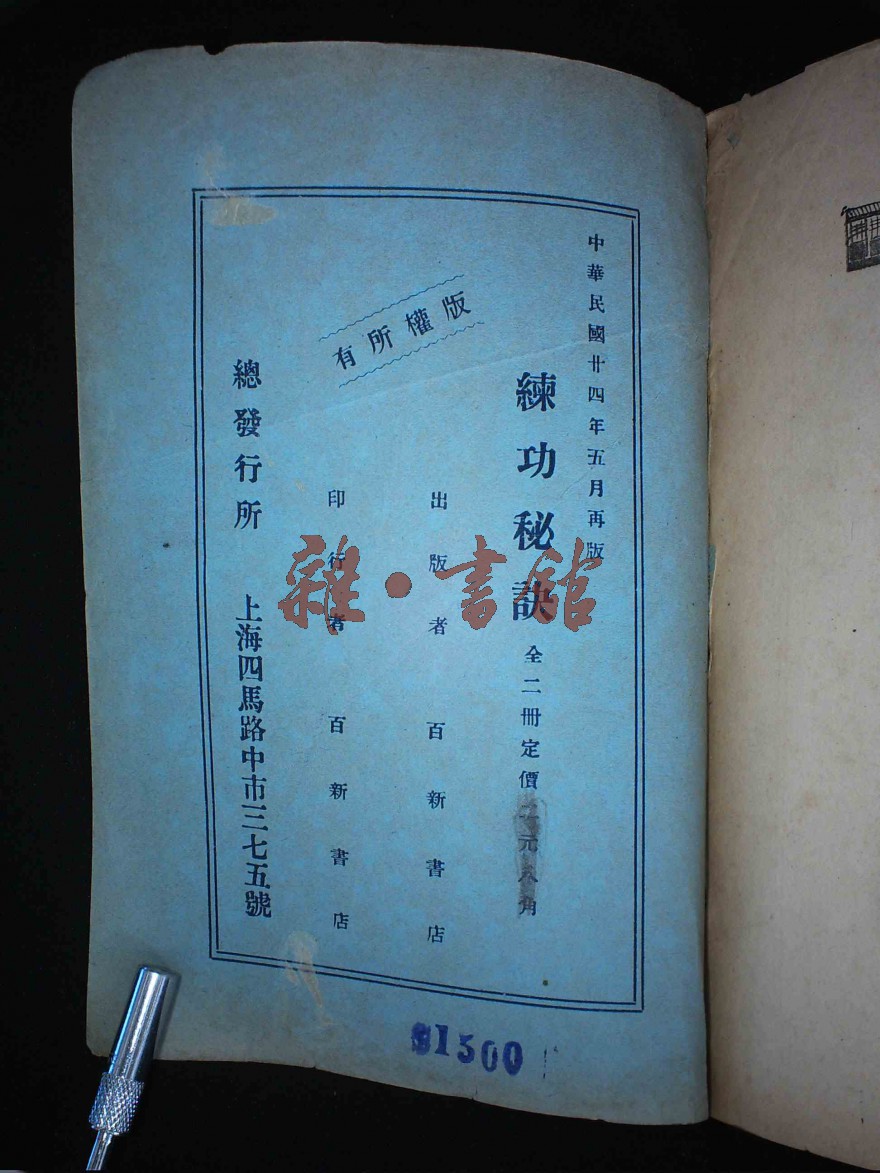 中華民國廿四年五月再版
練功秘訣 全二冊定價 元八角
版權所有
出版者 百新書店
印行者 百新書店
總發行所 上海四馬路中市三七五號
雜·書館
$1500